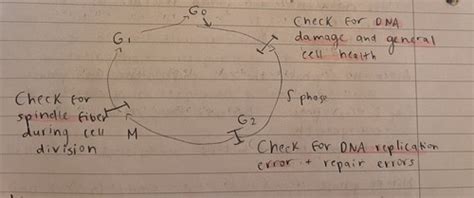 G0
G1
Check for DNA
damage and general
cell health
S phase
Check for
spindle fiber
during cell
division
M
G2
Check for DNA replication
error + repair errors